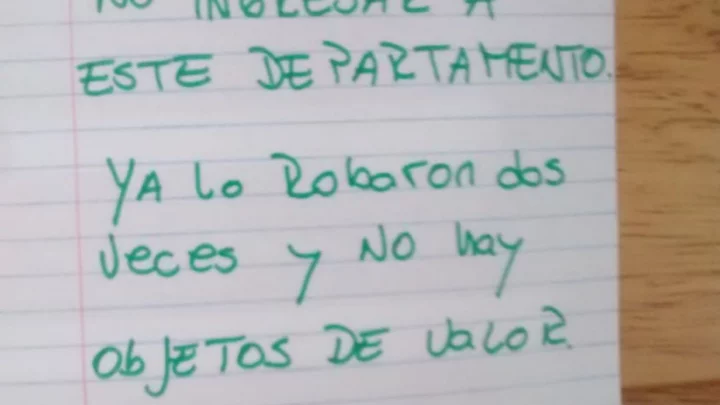 NO INGRESAR A
ESTE DEPARTAMENTO.
YA LO RobaroN dos
Veces y NO hay
ObJETOS DE VaLOR.